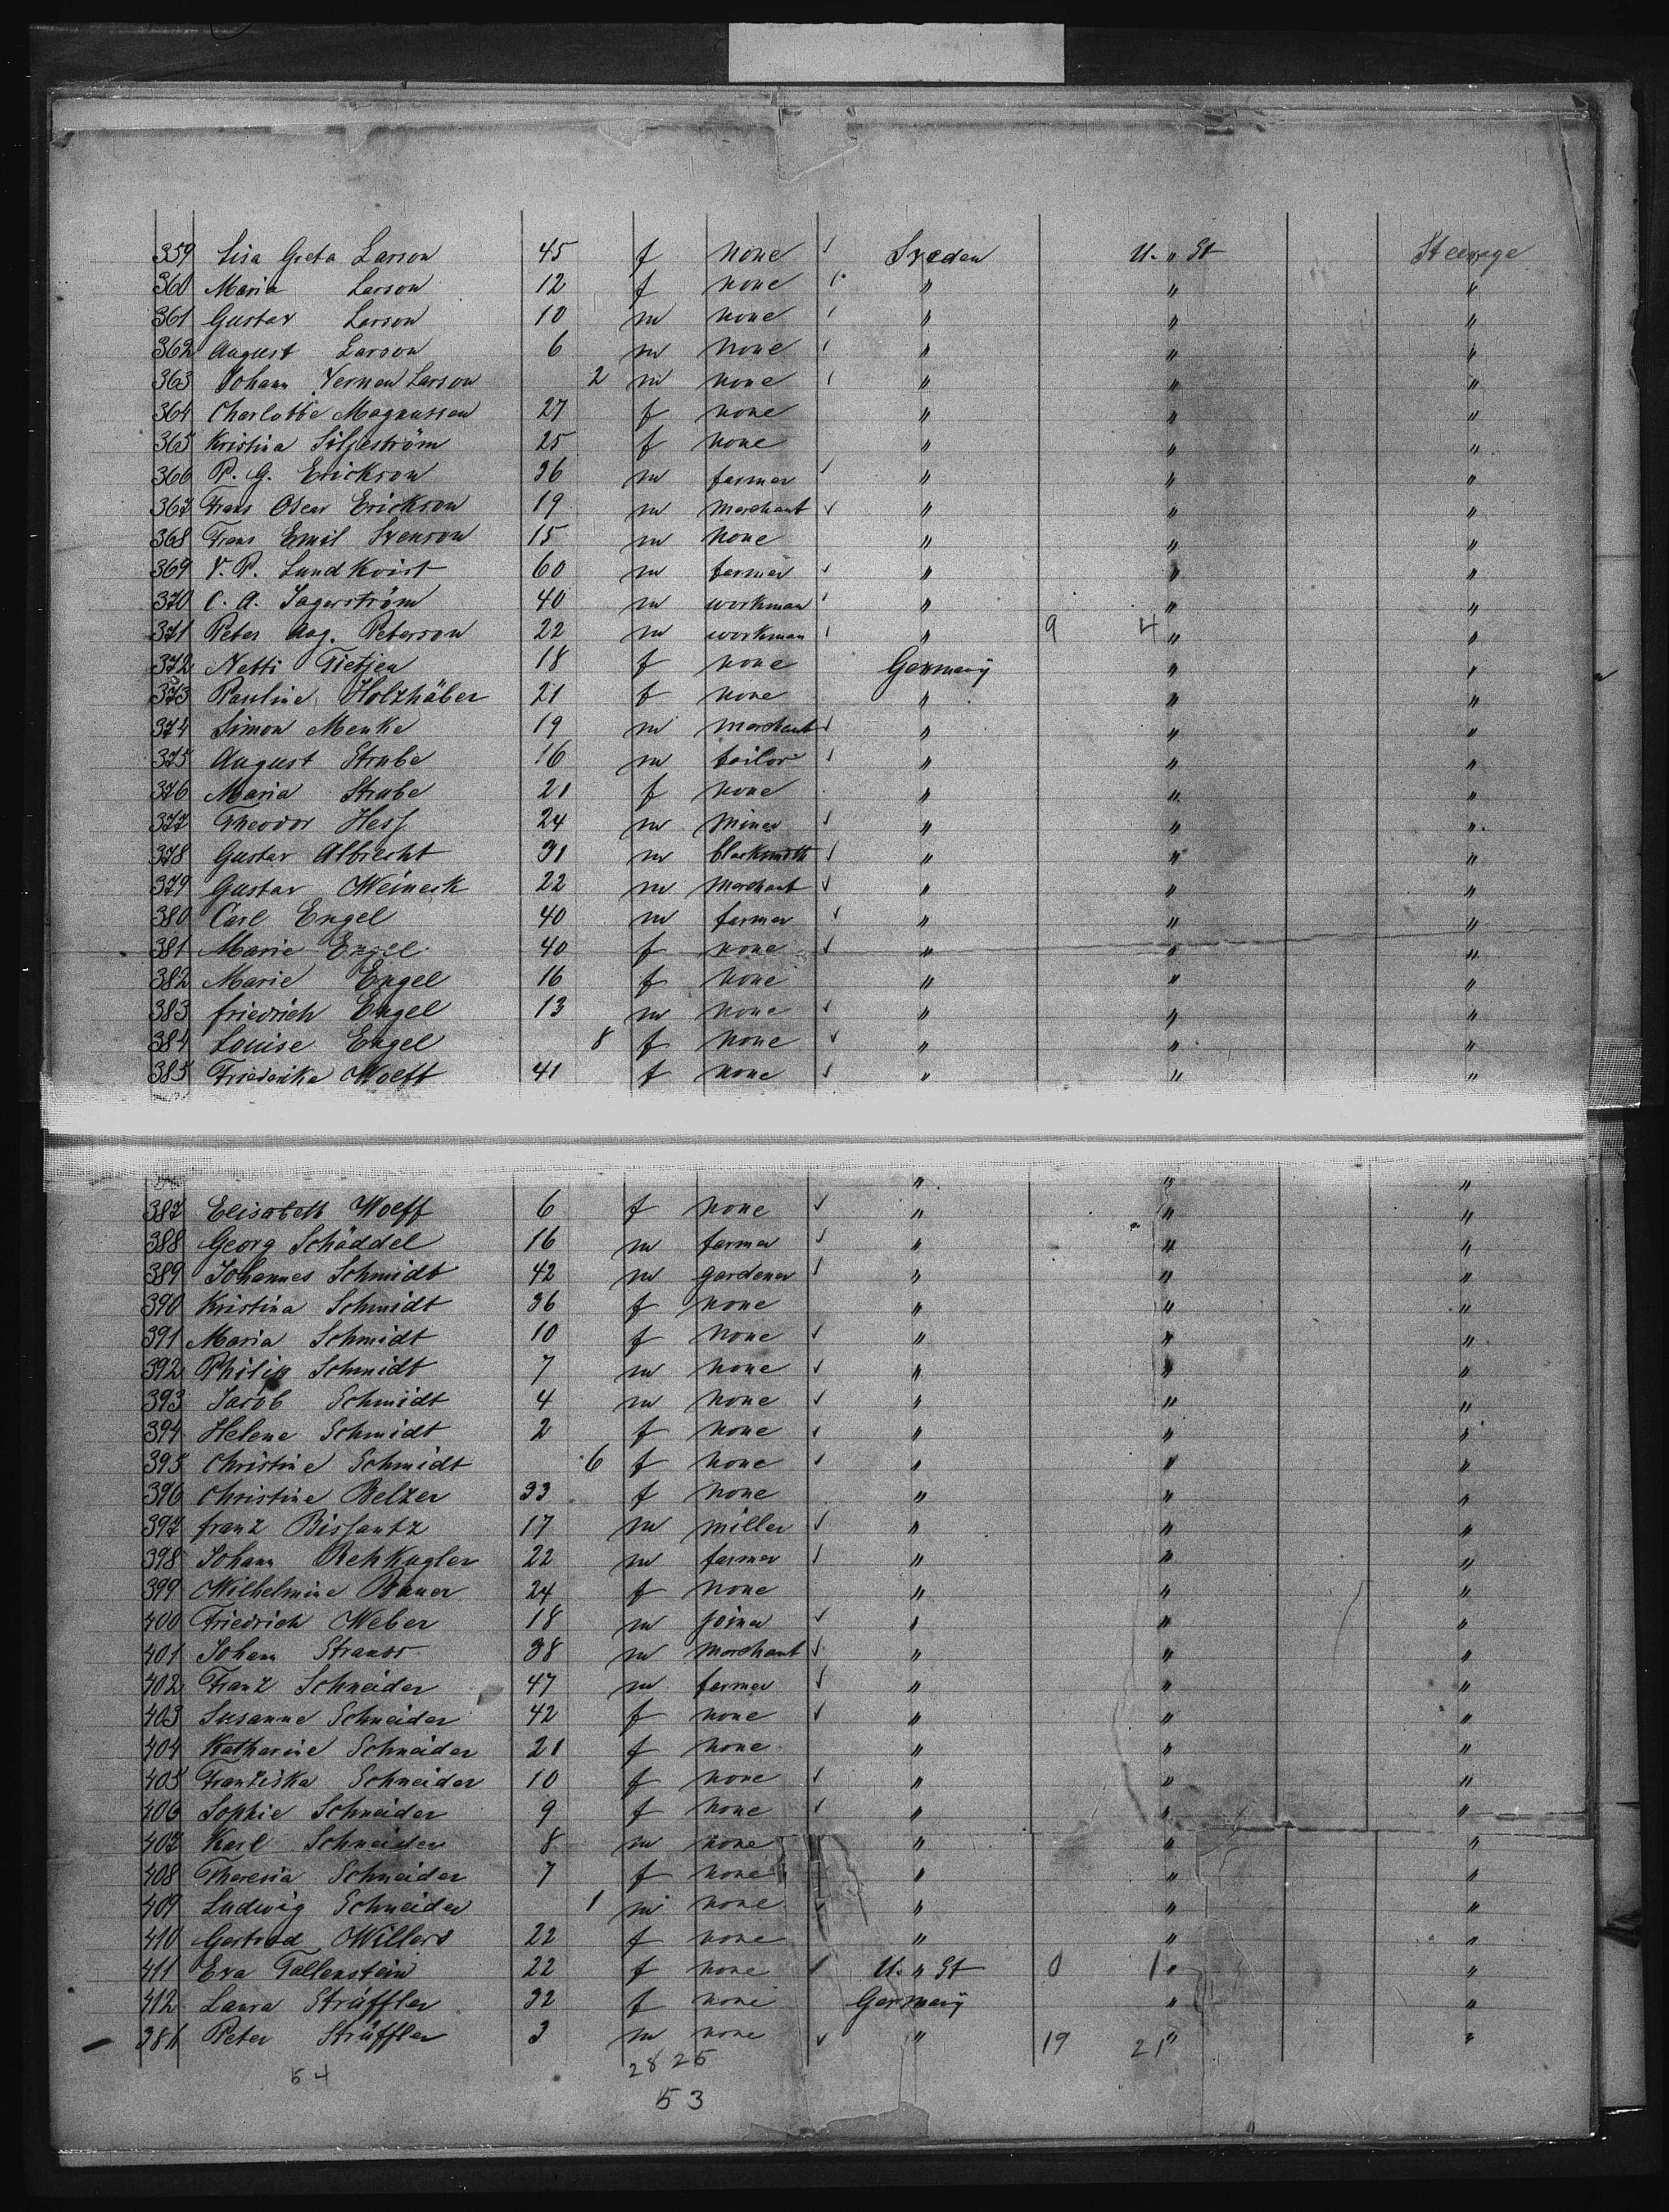 359 Lisa Greta Larson 45 f none Sveden U. " St Steerage
360 Maria Larson 12 f none " " "
361 Gustav Larson 10 m none " " "
362 August Larson 6 m none " " "
363 Johann Vernan Larson 2 m none " " "
364 Charlotte Magnussen 27 f none " " "
365 Kristina Siljeström 25 f none " " "
366 P. G. Erickson 36 m farmer " " "
367 Frans Oscar Erickson 19 m merchant " " "
368 Frans Emil Svenson 15 m none " " "
369 V. P. Lundkvist 60 m farmer " " "
370 C. A. Jagerström 40 m workman " " "
371 Peter Aug. Peterson 22 m workman " 9 4 " "
372 Netti Tietjen 18 f none Germany " "
373 Pauline Holzhäber 21 f none " " "
374 Simon Menke 19 m merchant " " "
375 August Strube 16 m tailor " " "
376 Maria Strube 21 f none " " "
377 Theodor Hess 24 m miner " " "
378 Gustav Albrecht 31 m blacksmith " " "
379 Gustav Weineck 22 m merchant " " "
380 Carl Engel 40 m farmer " " "
381 Marie Engel 40 f none " " "
382 Marie Engel 16 f none " " "
383 friedrich Engel 13 m none " " "
384 Louise Engel 8 f none " " "
385 Friederike Wolff 41 f none " " "
" " "
387 Elisabeth Wolff 6 f none " " "
388 Georg Schäddel 16 m farmer " " "
389 Johannes Schmidt 42 m gardener " " "
390 Kristina Schmidt 36 f none " " "
391 Maria Schmidt 10 f none " " "
392 Philip Schmidt 7 m none " " "
393 Jacob Schmidt 4 m none " " "
394 Helene Schmidt 2 f none " " "
395 Christine Schmidt 6 f none " " "
396 Christine Belzer 33 f none " " "
397 franz Bissantz 17 m miller " " "
398 Johann Rehkugler 22 m farmer " " "
399 Wilhelmine Bauer 24 f none " " "
400 Friedrich Weber 18 m joiner " " "
401 Johann Strauss 38 m merchant " " "
402 Franz Schneider 47 m farmer " " "
403 Susanne Schneider 42 f none " " "
404 Katharine Schneider 21 f none " " "
405 Franziska Schneider 10 f none " " "
406 Sophie Schneider 9 f none " " "
407 Karl Schneider 8 m none " " "
408 Theresia Schneider 7 f none " " "
409 Ludwig Schneider 1 m none " " "
410 Gertrud Willers 22 f none " " "
411 Eva Fallenstein 22 f none U. " St 0 1 " "
412 Laura Sträffler 32 f none Germany " "
386 Peter Sträffler 3 m none " 19 21 " "
54 28 25
53